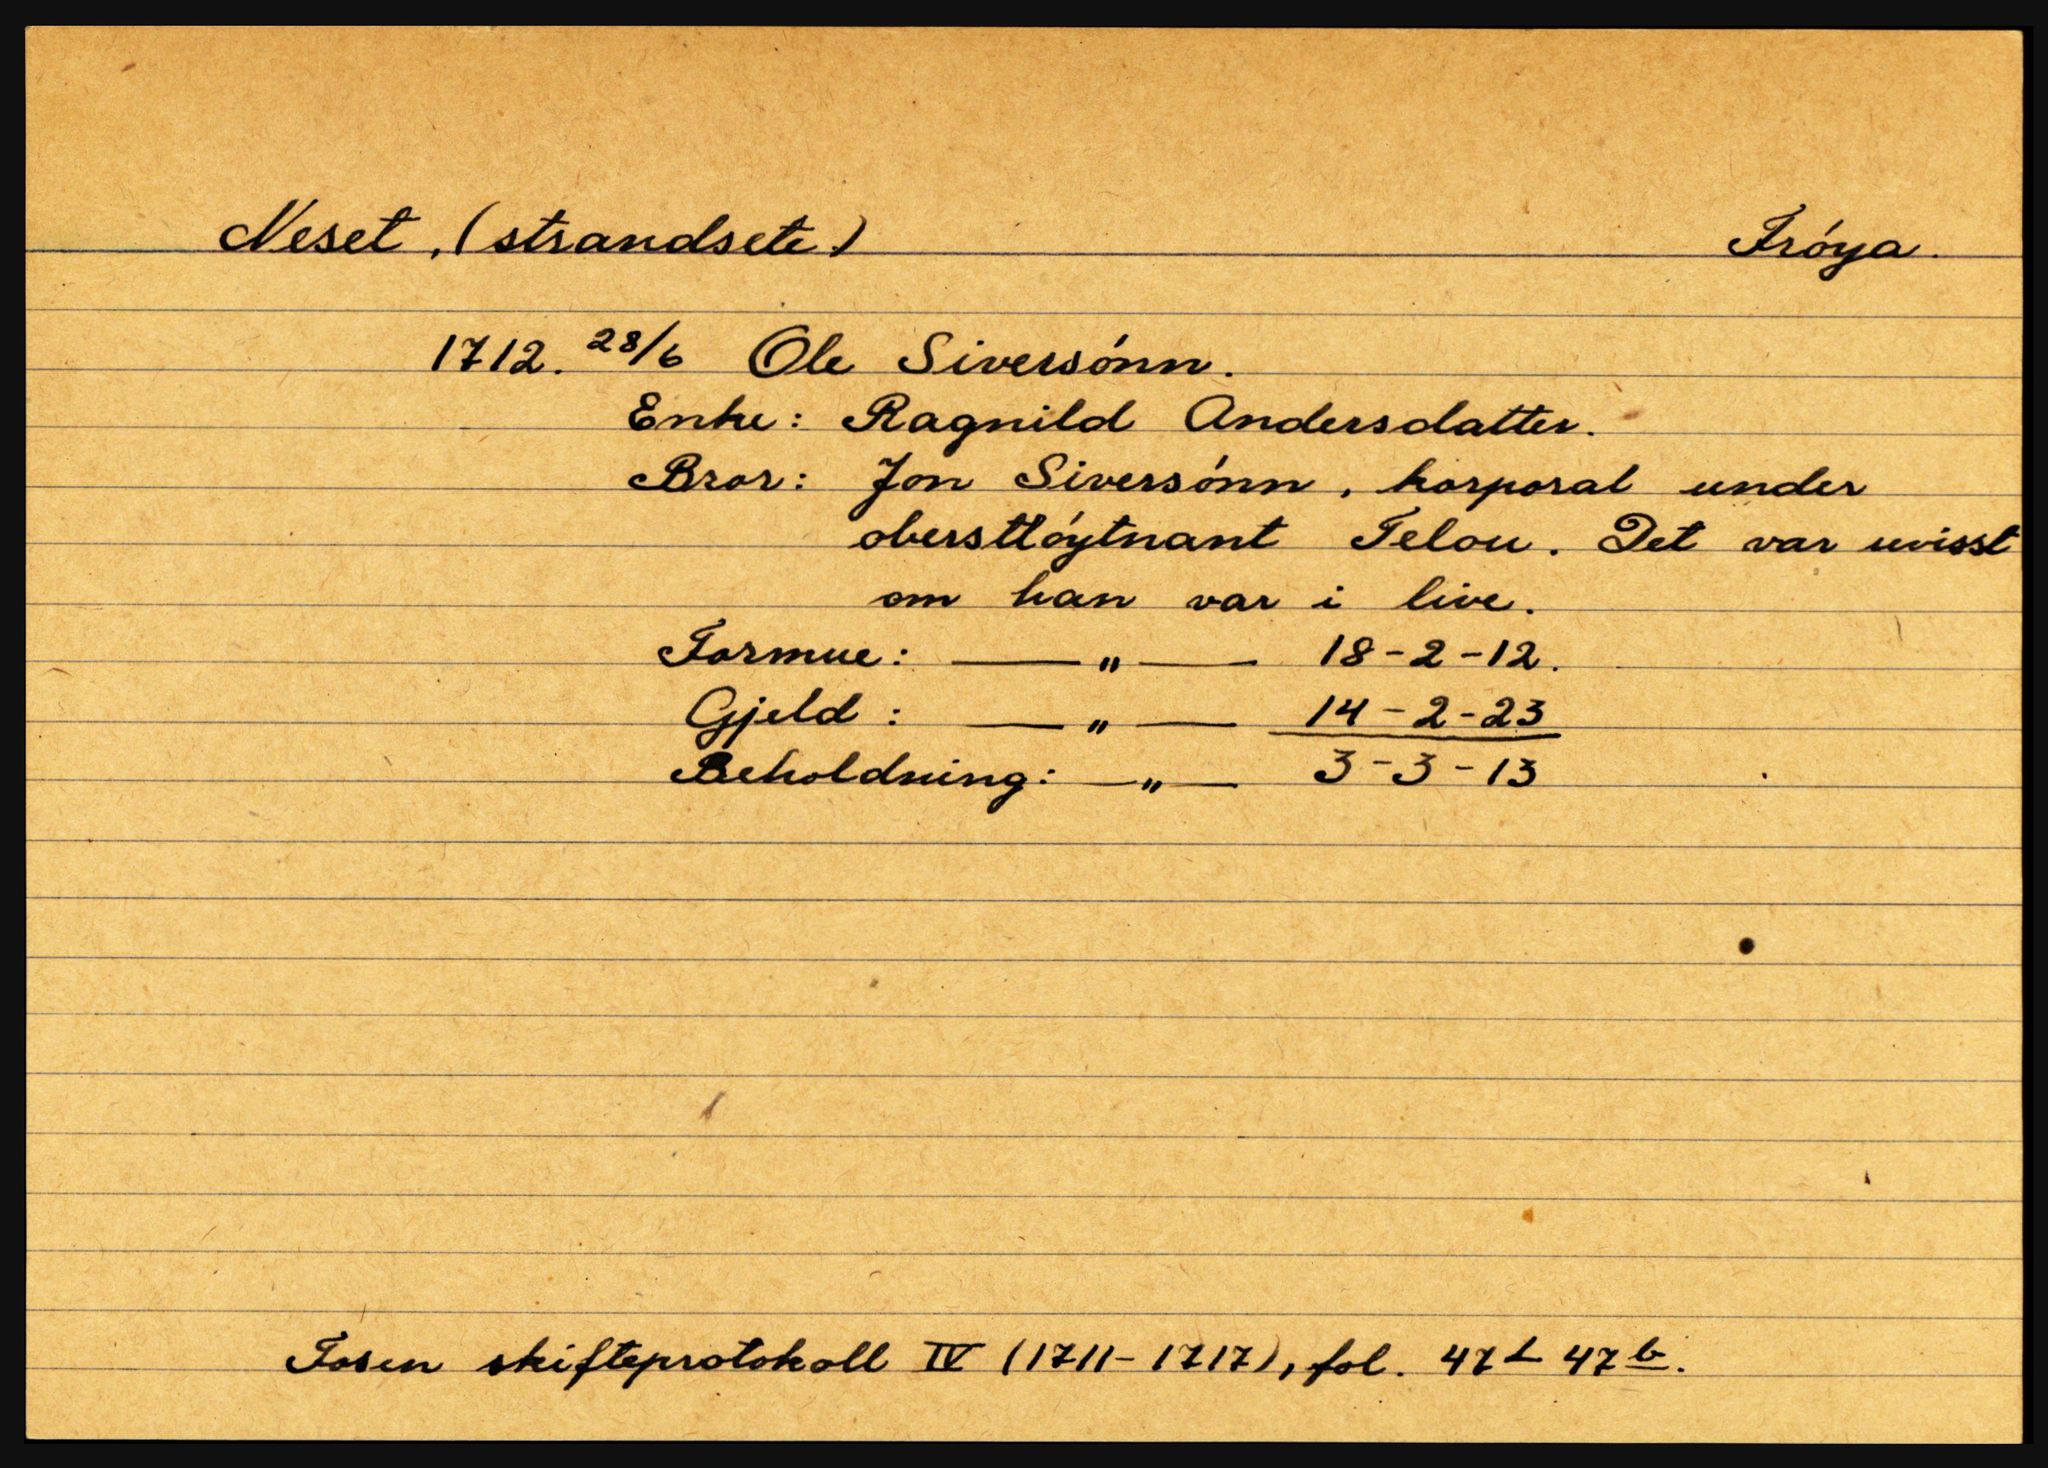 Neset, (strandsete) Fróya.
1712. 28/6 Ole Siversónn.
Enke: Ragnild Andersdatter.
Bror: Jon Siversónn, korporal under
oberstlóytnant Felou. Det var uvisst
om han var i live.
Formue: — " — 18-2-12.
Gjeld: — " — 14-2-23
Beholdning: — " — 3-3-13
Fosen skifteprotokoll IV (1711-1717), fol. 47 47b.